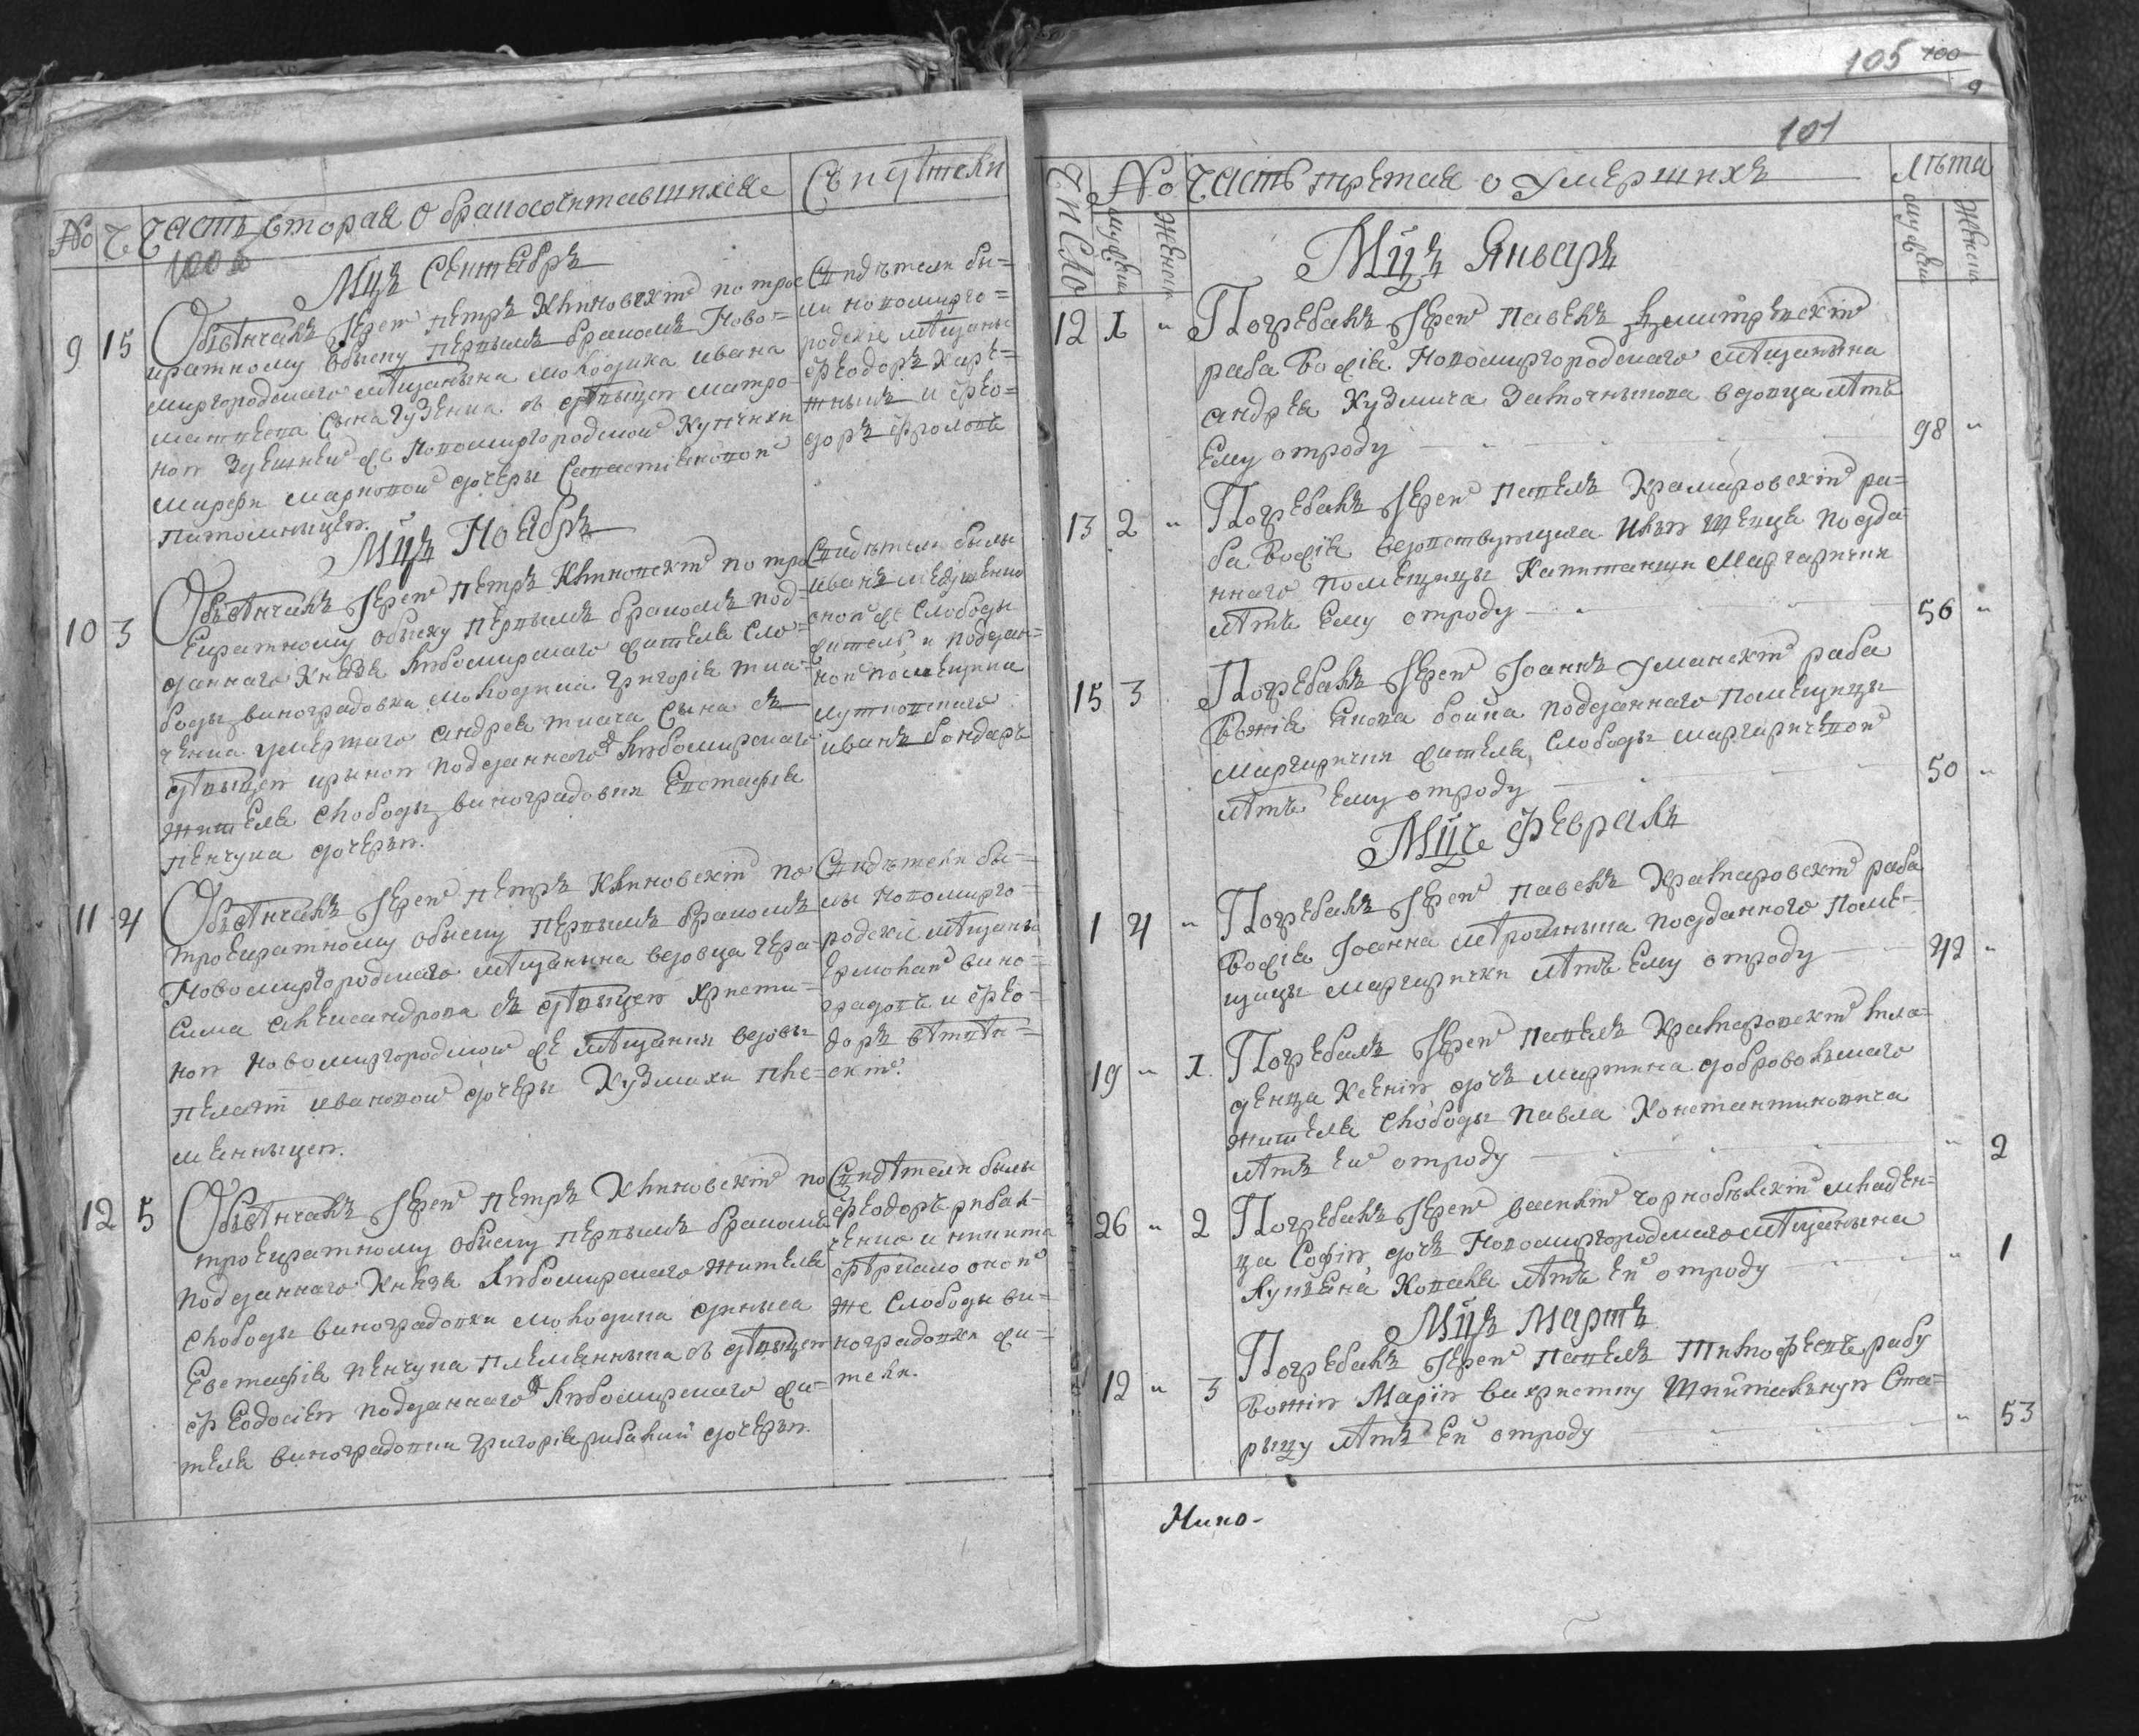 № Ч Часть вторая о бракосочетавшихся Свидѣтели
100
Мцъ Сентябръ
9 15 Обвѣнчалъ Іерей Петръ Клиновскій по трое
кратному обыску первымъ бракомъ Ново=
миргородскаго мѣщанына молодика Ивана
Матвѣева сына Гузенка съ дѣвыцею Матро
ною здешнею же Новомиргородской Купчихи
Марфи Марковой дочеры Савастіановой
питомныцею.
Свидѣтели бы=
ли новомирго=
родскіе мѣщаны
Ѳеодоръ Харь=
и Ѳео=
доръ Фроловъ
Мцъ Ноябръ
10 3 Обвѣнчалъ Іерей Петръ Клиновскій по тро
екратному обыску первымъ бракомъ под=
даннаго Князя Любомирскаго жителя сло=
боды виноградовки молодика Григорія Тка=
ченка умершаго Андрея Ткача сына съ
дѣвыцею Ирыною подданнаго Любомирскаго
жителя слободы виноградовки Евстафія
Пенчука дочерью.
Свидѣтели былы
Иванъ
оной же слободы
житель, и поддан=
ной помещика
Иванъ бондаръ
11 4 Обвѣнчалъ Іерей Петръ Клиновскій по
троекратному обыску первымъ бракомъ
Новомиргородскаго мѣщанына вдовца Гера
сима Александрова съ дѣвыцею Христи=
ною Новомиргородской же мѣщанки вдовы
Пелагіи Ивановой дочеры Кузмихи пле=
менныцею.
Свидѣтели бы=
лы новомирго=
родскіе мѣщаны
Ермолай вино=
градовъ и Ѳео=
доръ
скій.
12 5 Обвѣнчалъ Іерей Петръ Клиновскій по
троекратному обыску первымъ бракомъ
подданнаго Князя Любомирскаго жителя
слободы виноградовки молодика
Евстафія Пенчука племянныка съ дѣвыцею
Ѳеодосіею подданнаго Любомирскаго жи=
теля виноградовки Григорія рибалки дочерью.
Свидѣтели былы
Ѳеодоръ рибал=
ченко и никита
оной
же слободы ви=
ноградовки жи=
тели.
105 100
9
101
Число № Часть третая о умершихъ Лѣта
мужескъ женскъ мужескъ женскъ
Мцъ Январъ
12 1 " Погребалъ Іерей Павелъ Дмитревскій
раба Божія Новомиргородскаго мѣщанына
Андрея Кузмича вдовца лѣтъ
ему отроду 98 "
13 2 " Погребалъ Іерей Павелъ Крамаровскій ра=
ба Божія вдовствующаго Илью Шевця подда
ннаго помещицы Капитанши Маргаричии
лѣтъ ему отроду 56 "
15 3 Погребалъ Іерей Іоаннъ Уманскій раба
Божія Якова бойка подданнаго помещицы
Маргаричии жителя, слободы Маргаричевой
лѣтъ ему отроду 50 "
Мцъ Февралъ
1 4 " Погребалъ Іерей Павелъ Крамаровскій раба
Божія Іоанна Мѣрошныка подданного поме=
щицы Маргарички лѣтъ ему отроду 42 "
19 " 1 Погребалъ Іерей Павелъ Крамаровскій мла=
денца Ксенію дочь Мартина добровольскаго
жителя слободы Павла Константиновича
лѣтъ ей отроду " 2
26 " 2 Погребалъ Іерей Василій Чорнобѣльскій младен=
ца Софію, дочь Новомиргородскаго мѣщанына
Лукьяна Коваля лѣтъ ей отроду " 1
Мцъ Мартъ
12 " 3 Погребалъ Іерей Павелъ Тимофеевъ рабу
Божію Марію Шпитальную Ста=
рыцу лѣтъ ей отроду " 53
Нико-